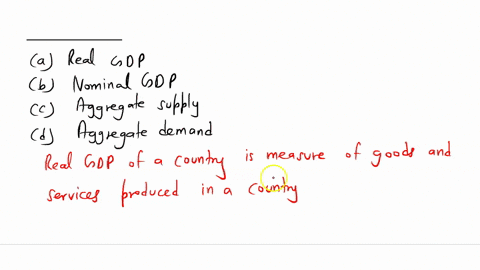 (a) Real GDP
(b) Nominal GDP
(c) Aggregate supply
(d) Aggregate demand
Real GDP of a country is measure of goods and
services produced in a country